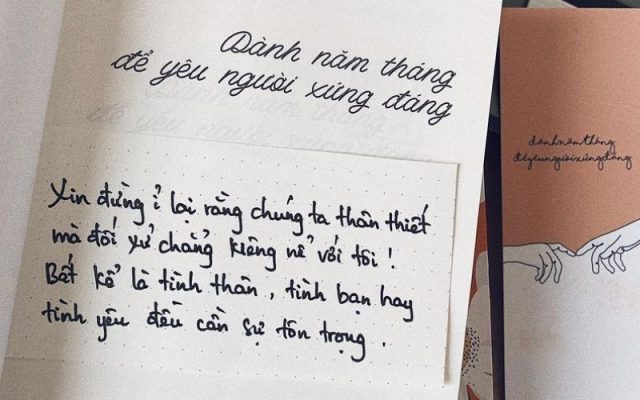 Dành năm tháng
để yêu người xứng đáng
Xin đừng ỉ lại rằng chúng ta thân thiết
mà đối xử chẳng kiêng nể với tôi !
Bất kể là tình thân , tình bạn hay
tình yêu đều cần sự tôn trọng .
dành năm tháng
để yêu người xứng đáng